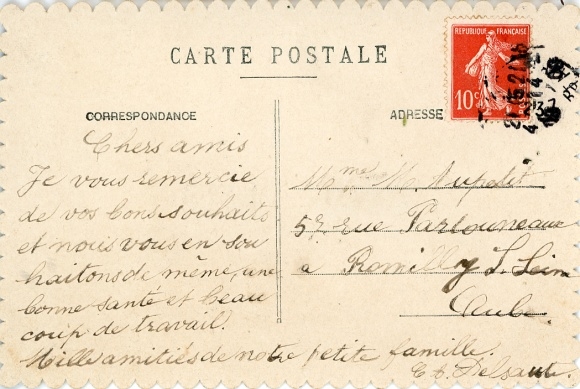 CARTE POSTALE
REPUBLIQUE FRANÇAISE
10c
CORRESPONDANCE
ADRESSE
Chers amis
Je vous remercie
de vos bons souhaits
et nous vous en sou
haitons de même, une
bonne santé et beau
coup de travail.
Mille amitiés de notre petite famille.
Mme M.
rue
à Romilly S. Seine
Aube